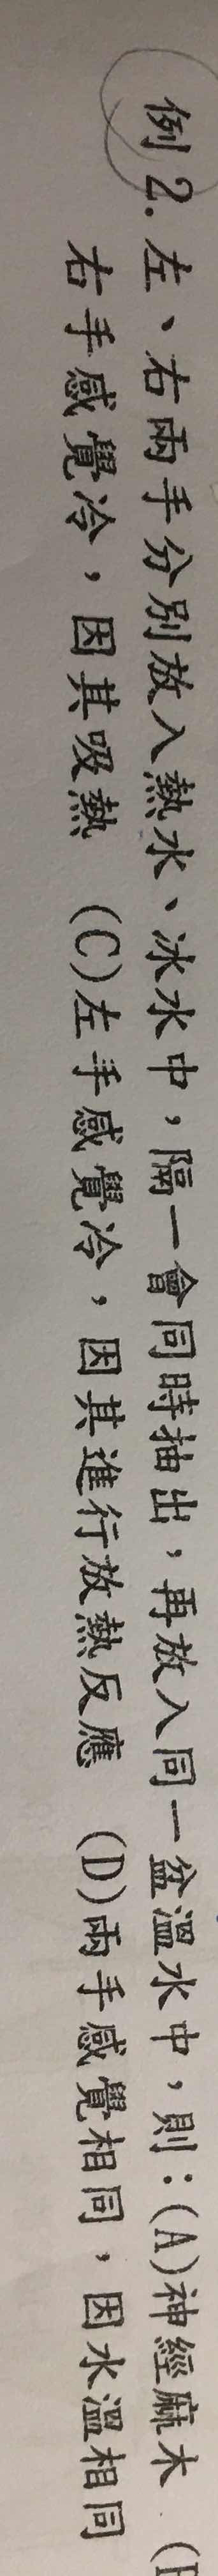 例2.左、右兩手分別放入熱水、冰水中，隔一會同時抽出，再放入同一盆溫水中，則：(A)神經麻木 (
右手感覺冷，因其吸熱 (C)左手感覺冷，因其進行放熱反應 (D)兩手感覺相同，因水溫相同